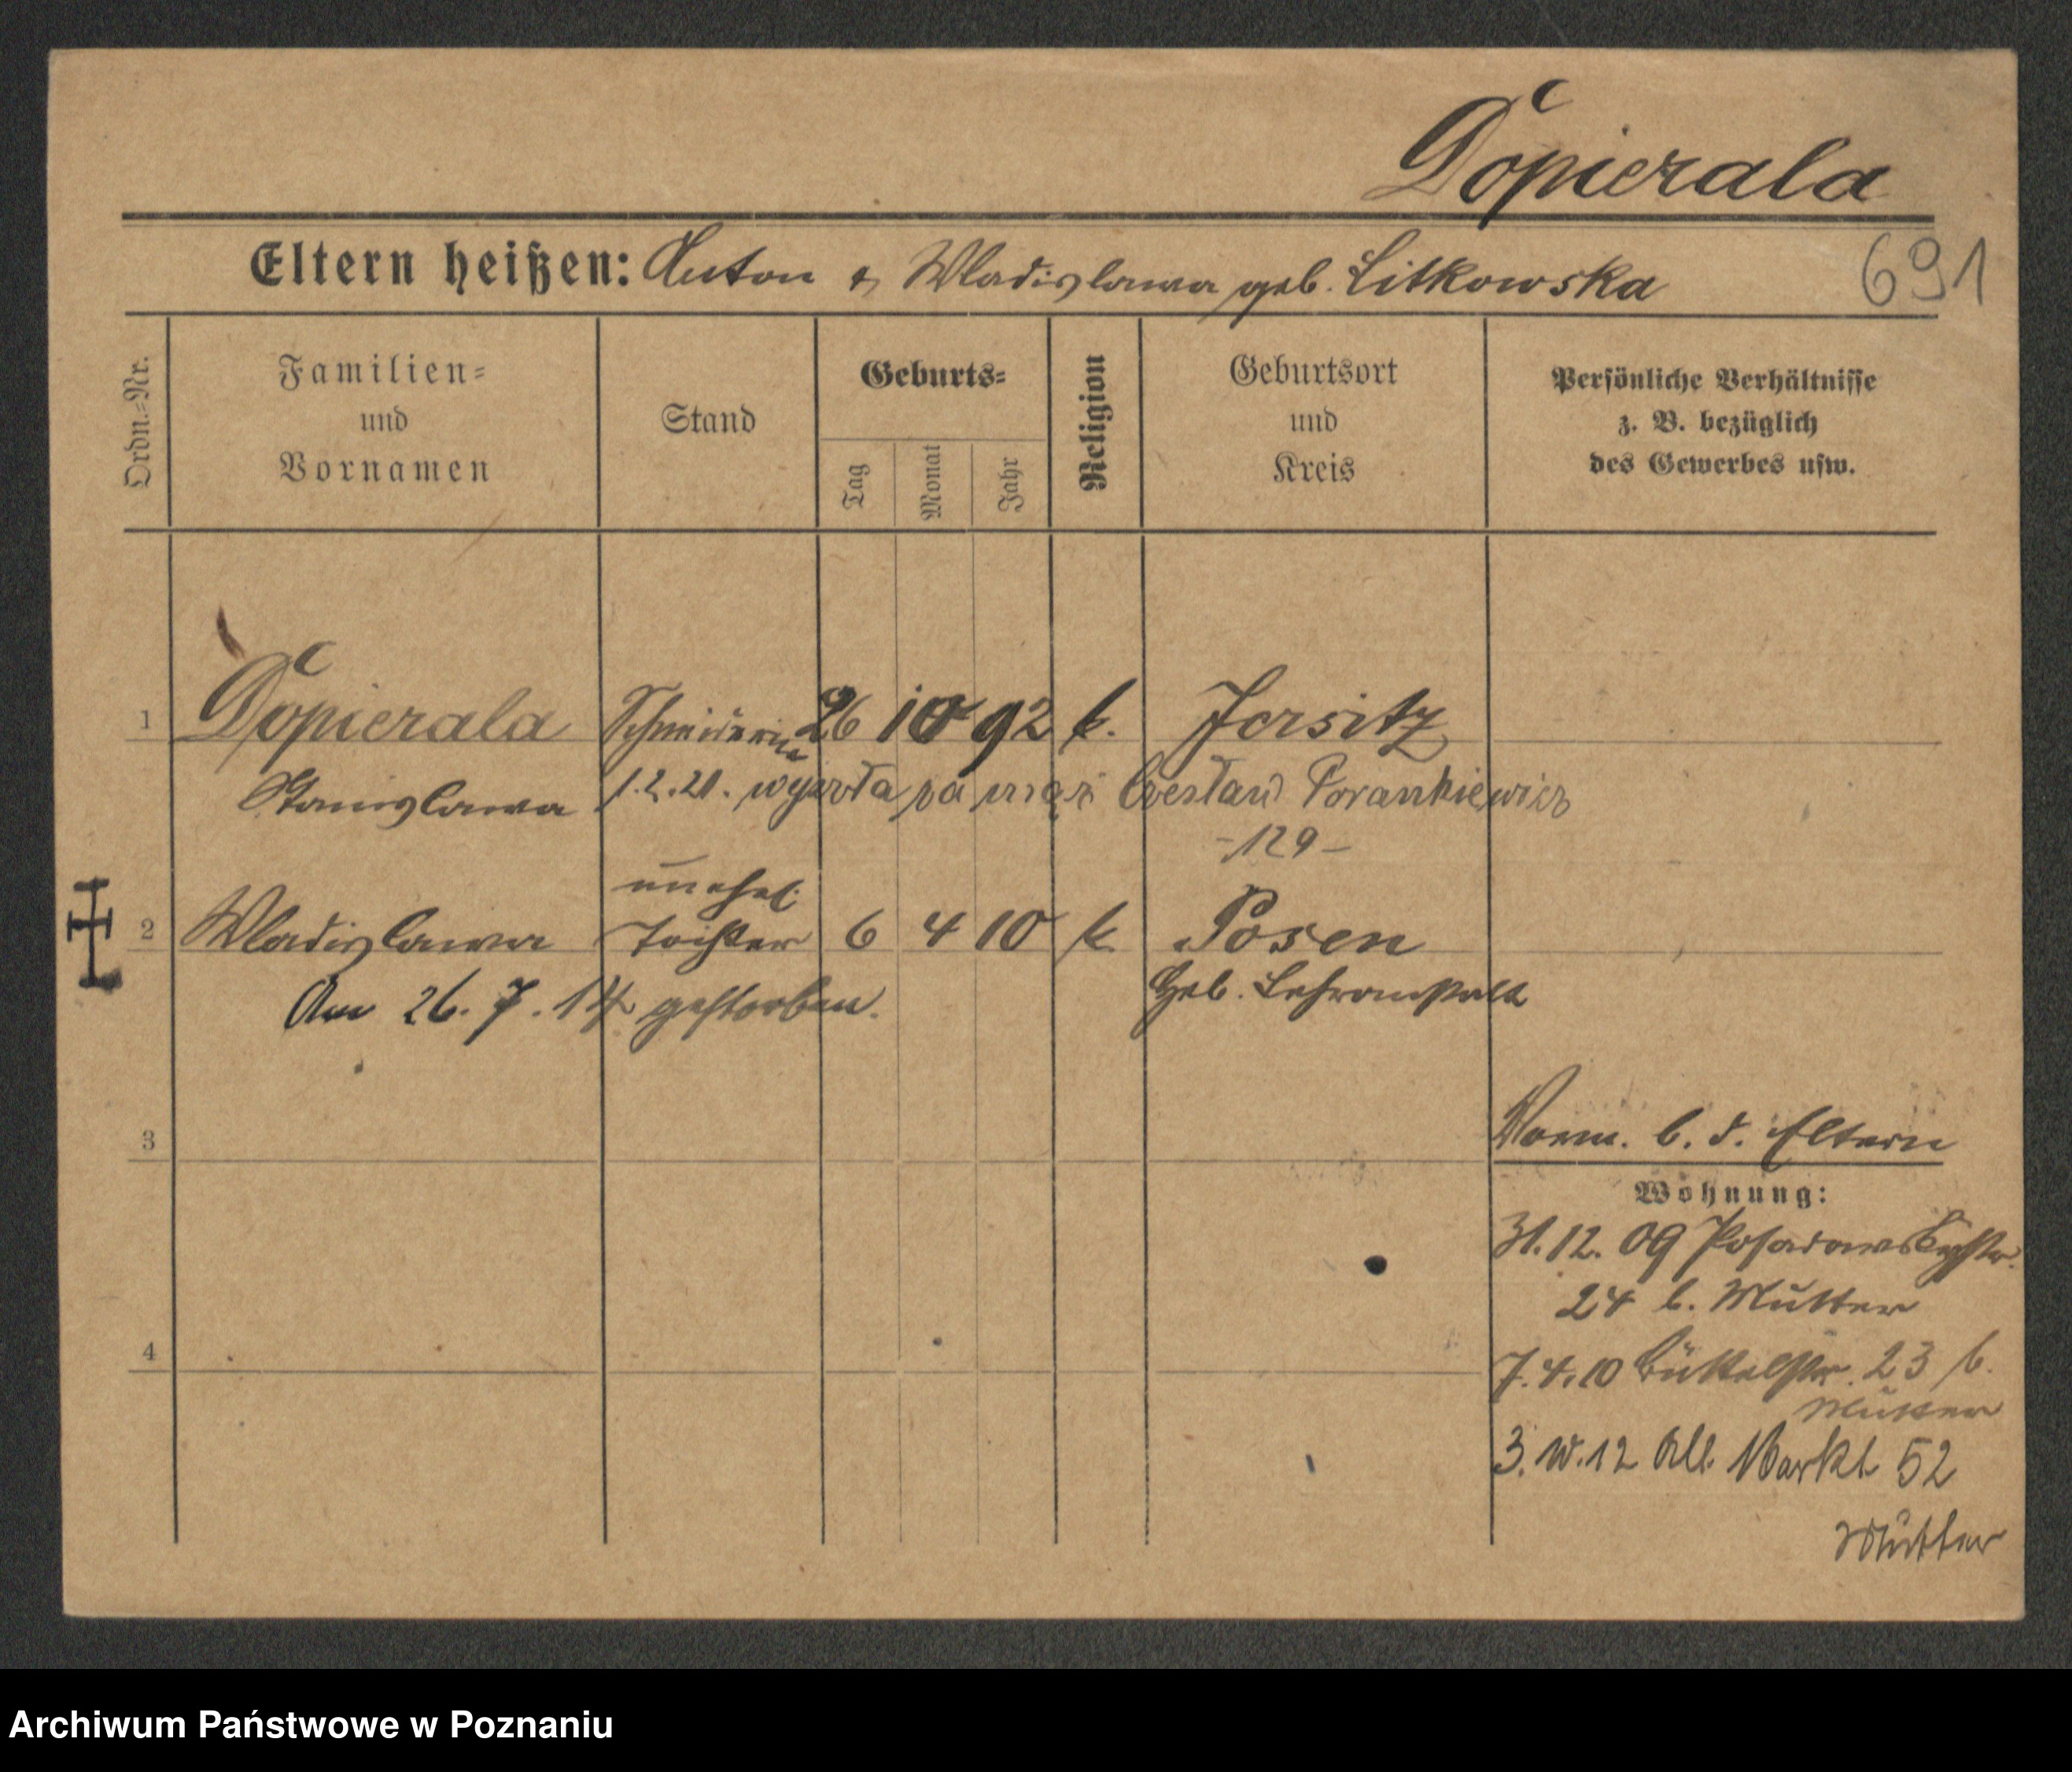 Dopierala
Eltern heißen: Anton & Wladislawa geb. Litkowska
691
Ordn.=Nr.
Familien=
und
Vornamen
Stand
Geburts=
Tag
Monat
Jahr
Religion
Geburtsort
und
Kreis
Persönliche Verhältnisse
z. B. bezüglich
des Gewerbes usw.
1 Dopierala Schneiderin 26 10 92 k. Jersitz
Stanislawa 1.2.21. wyszła za mąż Czesław Porankiewicz
-129-
unehel.
2 Wladislawa Tochter 6 4 10 k. Posen
Am 26.7.14 gestorben. Heb. Lehranstalt
3
Vorm. b. d. Eltern
Wohnung:
31.12.09 Posadowskystr.
24 b. Mutter
4
7.4.10 Büttelstr. 23 b.
Mutter
3. 12 Alt. Markt 52
Mutter
Archiwum Państwowe w Poznaniu